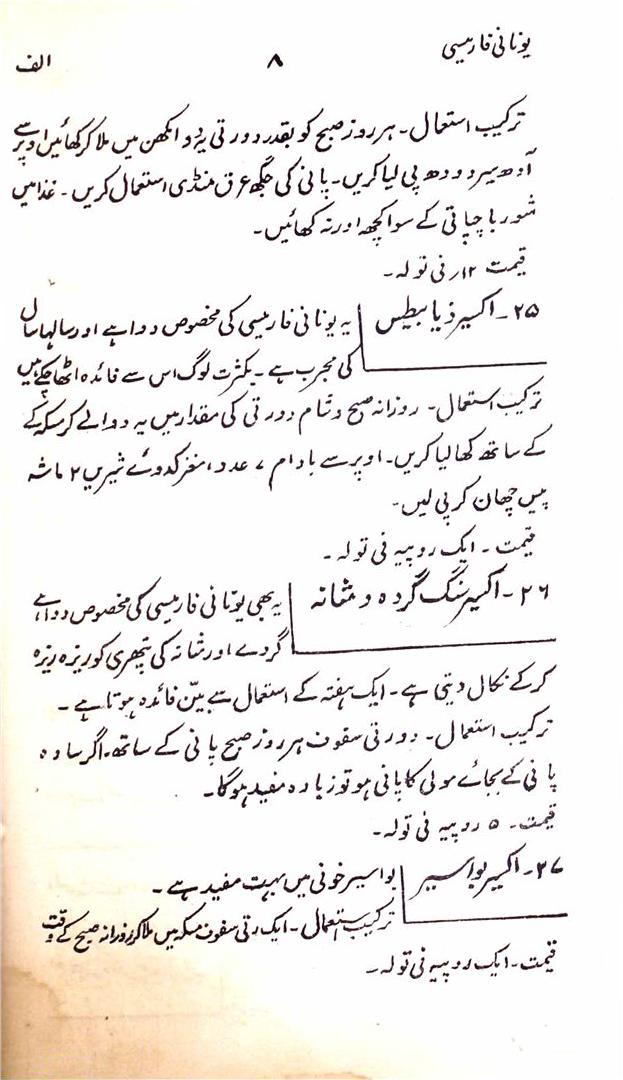 یونانی فارمیسی ۸ الف
ترکیب استعمال۔ ہر روز صبح کو بقدر دو رتی یہ دوا مکھن میں ملا کر کھائیں اوپر سے
آدھ سیر دودھ پی لیا کریں۔ پانی کی جگہ عرق منڈی استعمال کریں۔ غذا میں
شوربا چپاتی کے سوا کچھ اور نہ کھائیں۔
قیمت ۱۲ر فی تولہ۔
۲۵۔ اکسیر ذیابیطیس یہ یونانی فارمیسی کی مخصوص دوا ہے اور سالہا سال
کی مجرب ہے۔ بکثرت لوگ اس سے فائدہ اٹھا چکے ہیں
ترکیب استعمال۔ روزانہ صبح و شام دو رتی کی مقدار میں یہ دوا لے کر مسکہ کے
کے ساتھ کھا لیا کریں۔ اوپر سے بادام ۷ عدد، مغز کدوئے شیریں ۲ ماشہ
پیس چھان کر پی لیں۔
قیمت۔ ایک روپیہ فی تولہ۔
۲۶۔ اکسیر سنگ گردہ و مثانہ یہ بھی یونانی فارمیسی کی مخصوص دوا ہے
گردے اور مثانہ کی پتھری کو ریزہ ریزہ
کر کے نکال دیتی ہے۔ ایک ہفتہ کے استعمال سے بیّن فائدہ ہوتا ہے۔
ترکیب استعمال۔ دو رتی سفوف ہر روز صبح پانی کے ساتھ۔ اگر سادہ
پانی کے بجائے مولی کا پانی ہو تو زیادہ مفید ہوگا۔
قیمت۔ ۵ روپیہ فی تولہ۔
۲۷۔ اکسیر بواسیر بواسیر خونی میں بہت مفید ہے۔
ترکیب استعمال۔ ایک رتی سفوف مسکہ میں ملا کر روزانہ صبح کے وقت
قیمت۔ ایک روپیہ فی تولہ۔